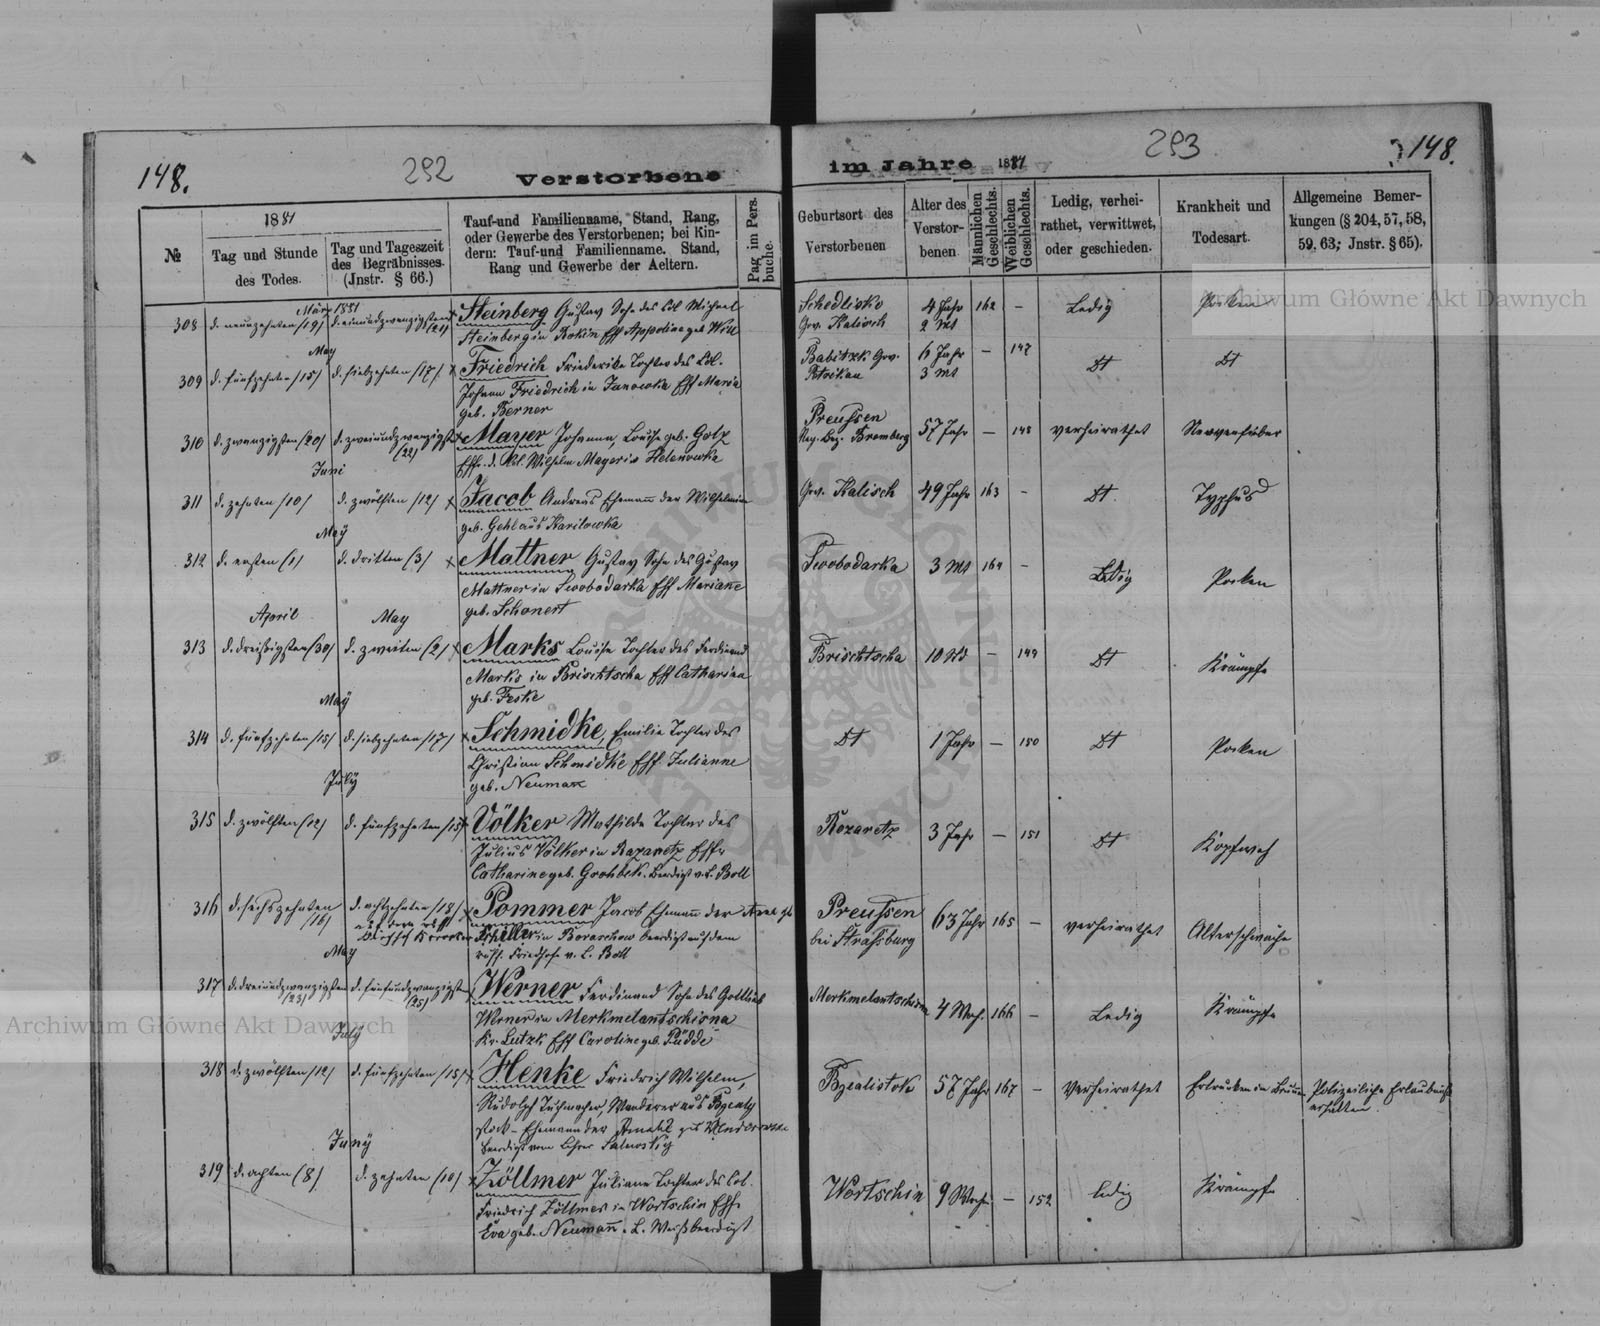 148.
292
Verstorbene
im Jahre 1881
293
148.
№
1881
Tag und Stunde
des Todes.
Tag und Tageszeit
des Begräbnisses.
(Jnstr. § 66.)
Tauf-und Familienname, Stand, Rang,
oder Gewerbe des Verstorbenen; bei Kin-
dern: Tauf-und Familienname. Stand,
Rang und Gewerbe der Aeltern.
Pag im Pers.
buche.
Geburtsort des
Verstorbenen
Alter des
Verstor-
benen
Männlichen
Geschlechts.
Weiblichen
Geschlechts.
Ledig, verhei-
rathet, verwittwet,
oder geschieden.
Krankheit und
Todesart.
Allgemeine Bemer-
kungen (§ 204, 57, 58,
59, 63; Jnstr. § 65).
März 1881
308 d. neunzehnten (19) d. einundzwanzigsten (21)
Steinberg Gustav Sohn des Col. Michael
Steinberg in Rokin Eff Appoline geb. Will
Schedlisko
Gov. Kalisch
4 Jahr
2 Mt
162 – Ledig Pocken
May
309 d. fünfzehnten (15) d. siebzehnten (17)
Friedrich Friederike Tochter des Col.
Johann Friedrich in Janowka Eff Maria
geb. Berner
Babitzk Gov.
Petrikau
6 Jahr
3 Mt
– 147 Dt Dt
310 d. zwanzigsten (20) d. zweiundzwanzigsten (22)
Mayer Johanna, Louise geb. Golz
Effr. d. Col. Wilhelm Mayer in Helenowka
Preußen
Reg. Bez. Bromberg
57 Jahr – 148 verheirathet Nervenfieber
Juni
311 d. zehnten (10) d. zwölften (12)
Jacob Andreas Ehemann der Wilhelmine
geb. Gehl aus Karilowka
Gov. Kalisch 49 Jahr 163 – Dt. Typhus
May
312 d. ersten (1) d. dritten (3)
Mattner Gustav Sohn des Gustav
Mattner in Swobodarka Eff Mariane
geb. Schonert
Swobodarka 3 Mt 164 – Ledig Pocken
April May
313 d. dreißigsten (30) d. zweiten (2)
Marks Louise Tochter des Ferdinand
Marks in Brischtscha Eff Catharina
geb. Feske
Brischtscha 10 – 149 Dt Krämpfe
May
314 d. fünfzehnten (15) d. siebzehnten (17)
Schmidke, Emilie Tochter des
Christian Schmidke Eff. Julianne
geb. Neumann
Dt 1 Jahr – 150 Dt Pocken
July
315 d. zwölften (12) d. fünfzehnten (15)
Völker Mathilde Tochter des
Julius Völker in Razaretz Effr
Catharine geb. Grohbek. Beerdigt v. L. Boll
Rozaretz 3 Jahr – 151 Dt Kopfweh
316 d. sechszehnten (16) d. achtzehnten (18)
Pommer Jacob Ehemann der
in Boraschow beerdigt auf dem
russ. Friedhofe v. L. Boll
Preußen
bei Straßburg
63 Jahr 165 – verheirathet Altersschwäche
May
317 d. dreiundzwanzigsten (23) d. fünfundzwanzigsten (25)
Werner Ferdinand Sohn des Gottlieb
Werner in Merkmelantschisna
Kr. Lutzk Eff Caroline geb. Püdde
Merkmelantschisna 4 Woch. 166 – Ledig Krämpfe
July
318 d. zwölften (12) d. fünfzehnten (15)
Henke Friedrich Wilhelm,
Rudolph Tuchmacher, Wanderer aus Byaly
stock – Ehemann der
beerdigt vom Lehrer
Byalistok 57 Jahr 167 – Verheirathet Ertrunken im Brunnen Polizeiliche Erlaubniß
erhalten.
Juny
319 d. achten (8) d. zehnten (10)
Zöllmer Juliane Tochter des Col.
Friedrich Zöllmer in Wortschin Effr
Eva geb. Neumann. L. Weiß beerdigt
Wortschin 9 Woch. – 152 ledig Krämpfe
Archiwum Główne Akt Dawnych
Archiwum Główne Akt Dawnych
ARCHIWUM GŁÓWNE AKT DAWNYCH